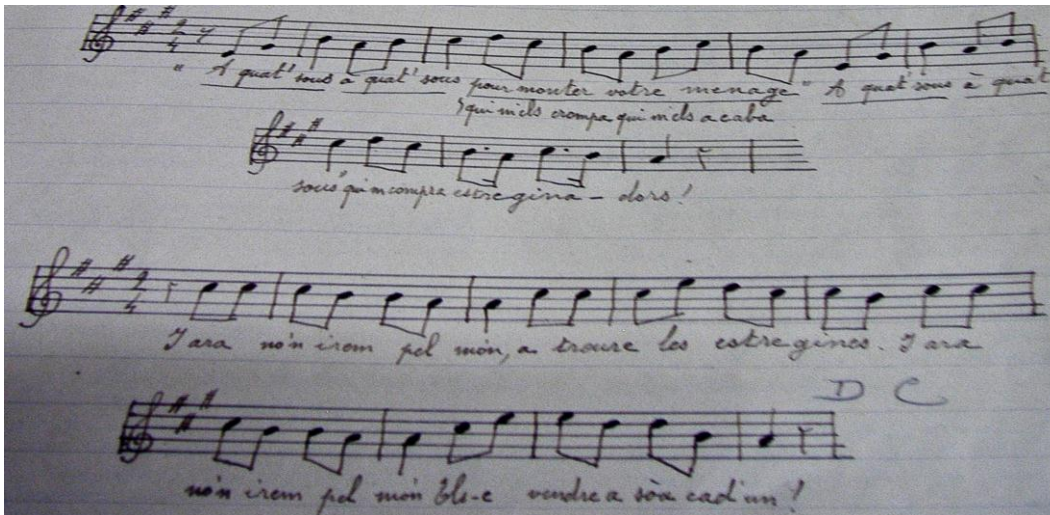 " A quat' sous a quat' sous pour monter votre menage " A quat' sous à quat
qui mels crompa qui mels acaba
sous" qui m compra estregina - dors!
I ara no'n irem pel món, a troure les estregines. I ara
D C
no'n irem pel món Els-e vendre a sòx cad'un!